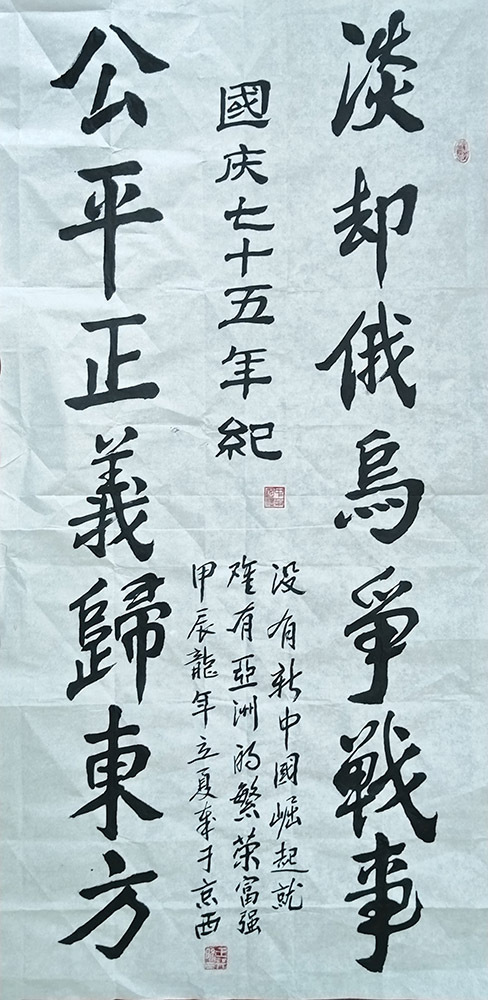 淡却俄烏爭戰事
國庆七十五年纪
没有新中國崛起就
难有亞洲的繁荣富强
甲辰龍年立夏车于京西
公平正義歸東方